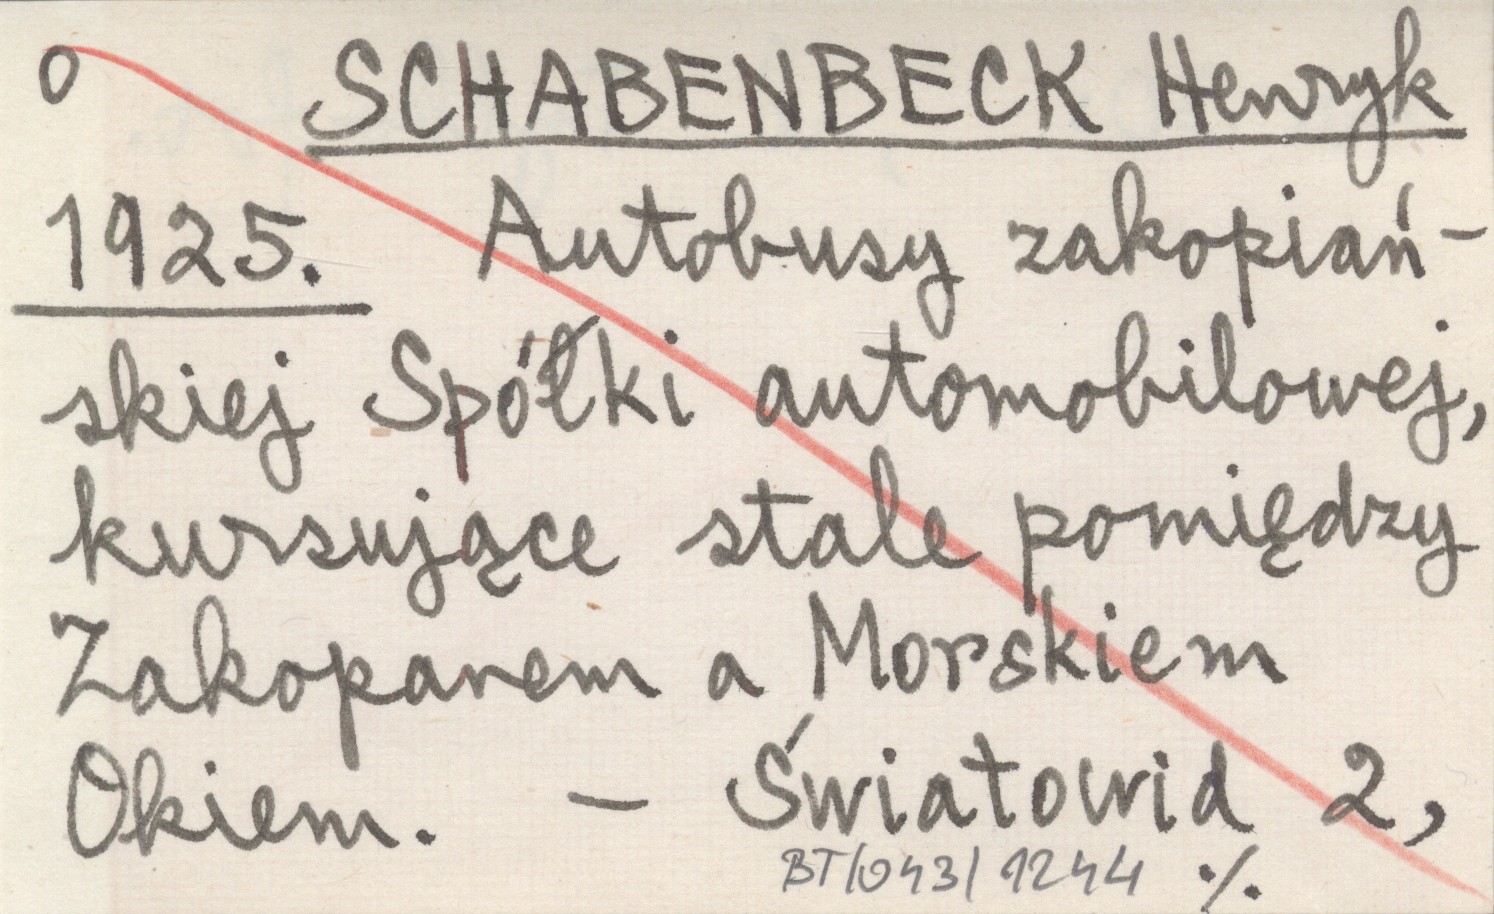 o SCHABENBECK Henryk
1925. Autobusy zakopiań-
skiej Spółki automobilowej,
kursujące stale pomiędzy
Zakopanem a Morskiem
Okiem. – Światowid 2,
BT/043/1244 ·/.